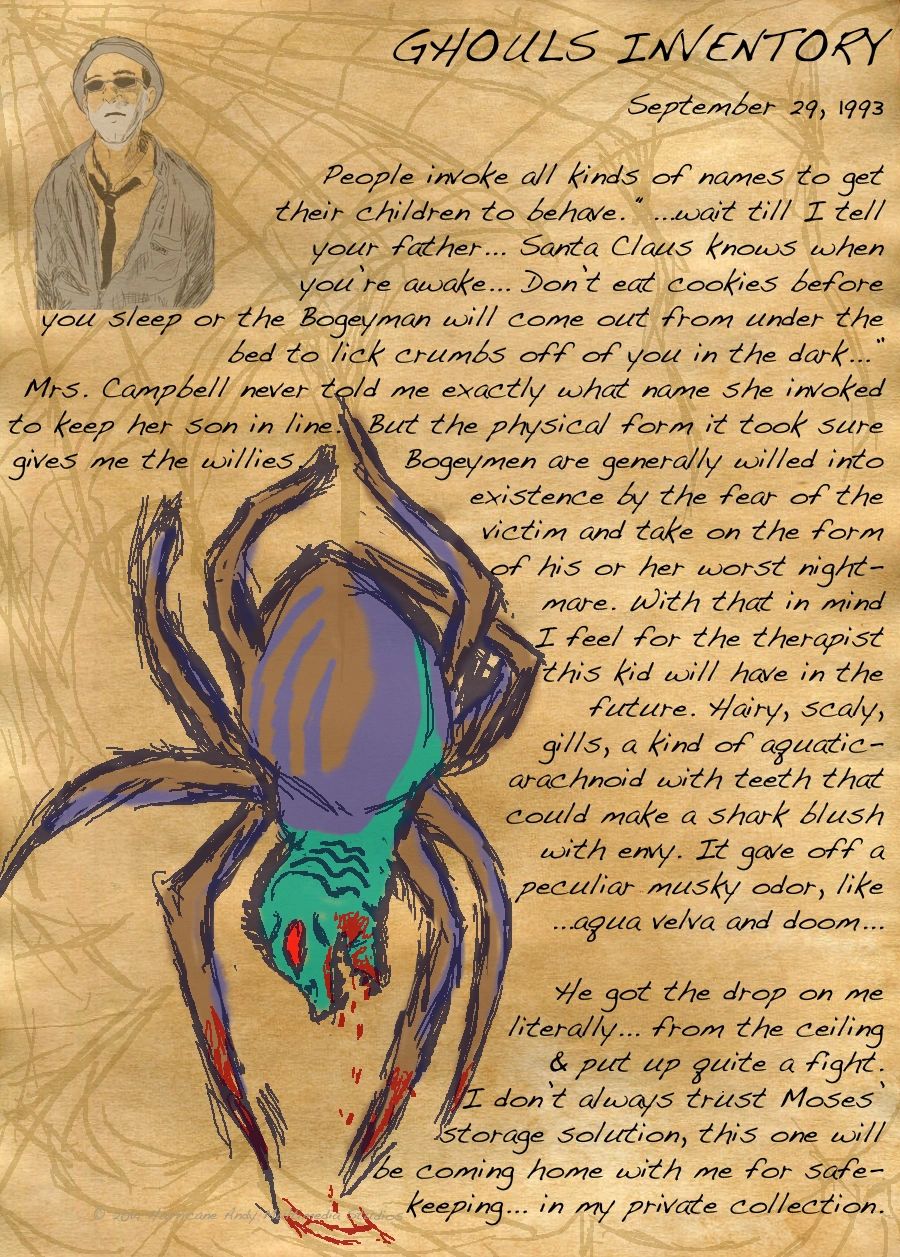 GHOULS INVENTORY
September 29, 1993
People invoke all kinds of names to get
their children to behave." ...wait till I tell
your father... Santa Claus knows when
you're awake... Don't eat cookies before
you sleep or the Bogeyman will come out from under the
bed to lick crumbs off of you in the dark..."
Mrs. Campbell never told me exactly what name she invoked
to keep her son in line. But the physical form it took sure
gives me the willies. Bogeymen are generally willed into
existence by the fear of the
victim and take on the form
of his or her worst night-
mare. With that in mind
I feel for the therapist
this kid will have in the
future. Hairy, scaly,
gills, a kind of aquatic-
arachnoid with teeth that
could make a shark blush
with envy. It gave off a
peculiar musky odor, like
...aqua velva and doom...
He got the drop on me
literally... from the ceiling
& put up quite a fight.
I don't always trust Moses'
storage solution, this one will
be coming home with me for safe-
keeping... in my private collection.
© Hurricane Andy Studios